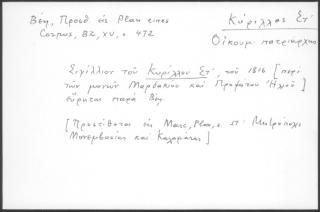 Βέη, Προσθ εἰς Plan eines
Corpus, BZ, XV, σ 472
Κύριλλος Στ´
Οἰκουμ πατριάρχης
Σιγίλλιον τοῦ Κυρίλλου Στ´, τοῦ 1816 [περὶ
τῶν μονῶν Μαρδακίου καὶ Προφήτου Ἠλιοῦ]
εὕρηται παρὰ Βέῃ.
[Προστίθεται εἰς Marc, Plan, σ. Μητρόπολις
Μονεμβασίας καὶ Καλαμάτας]